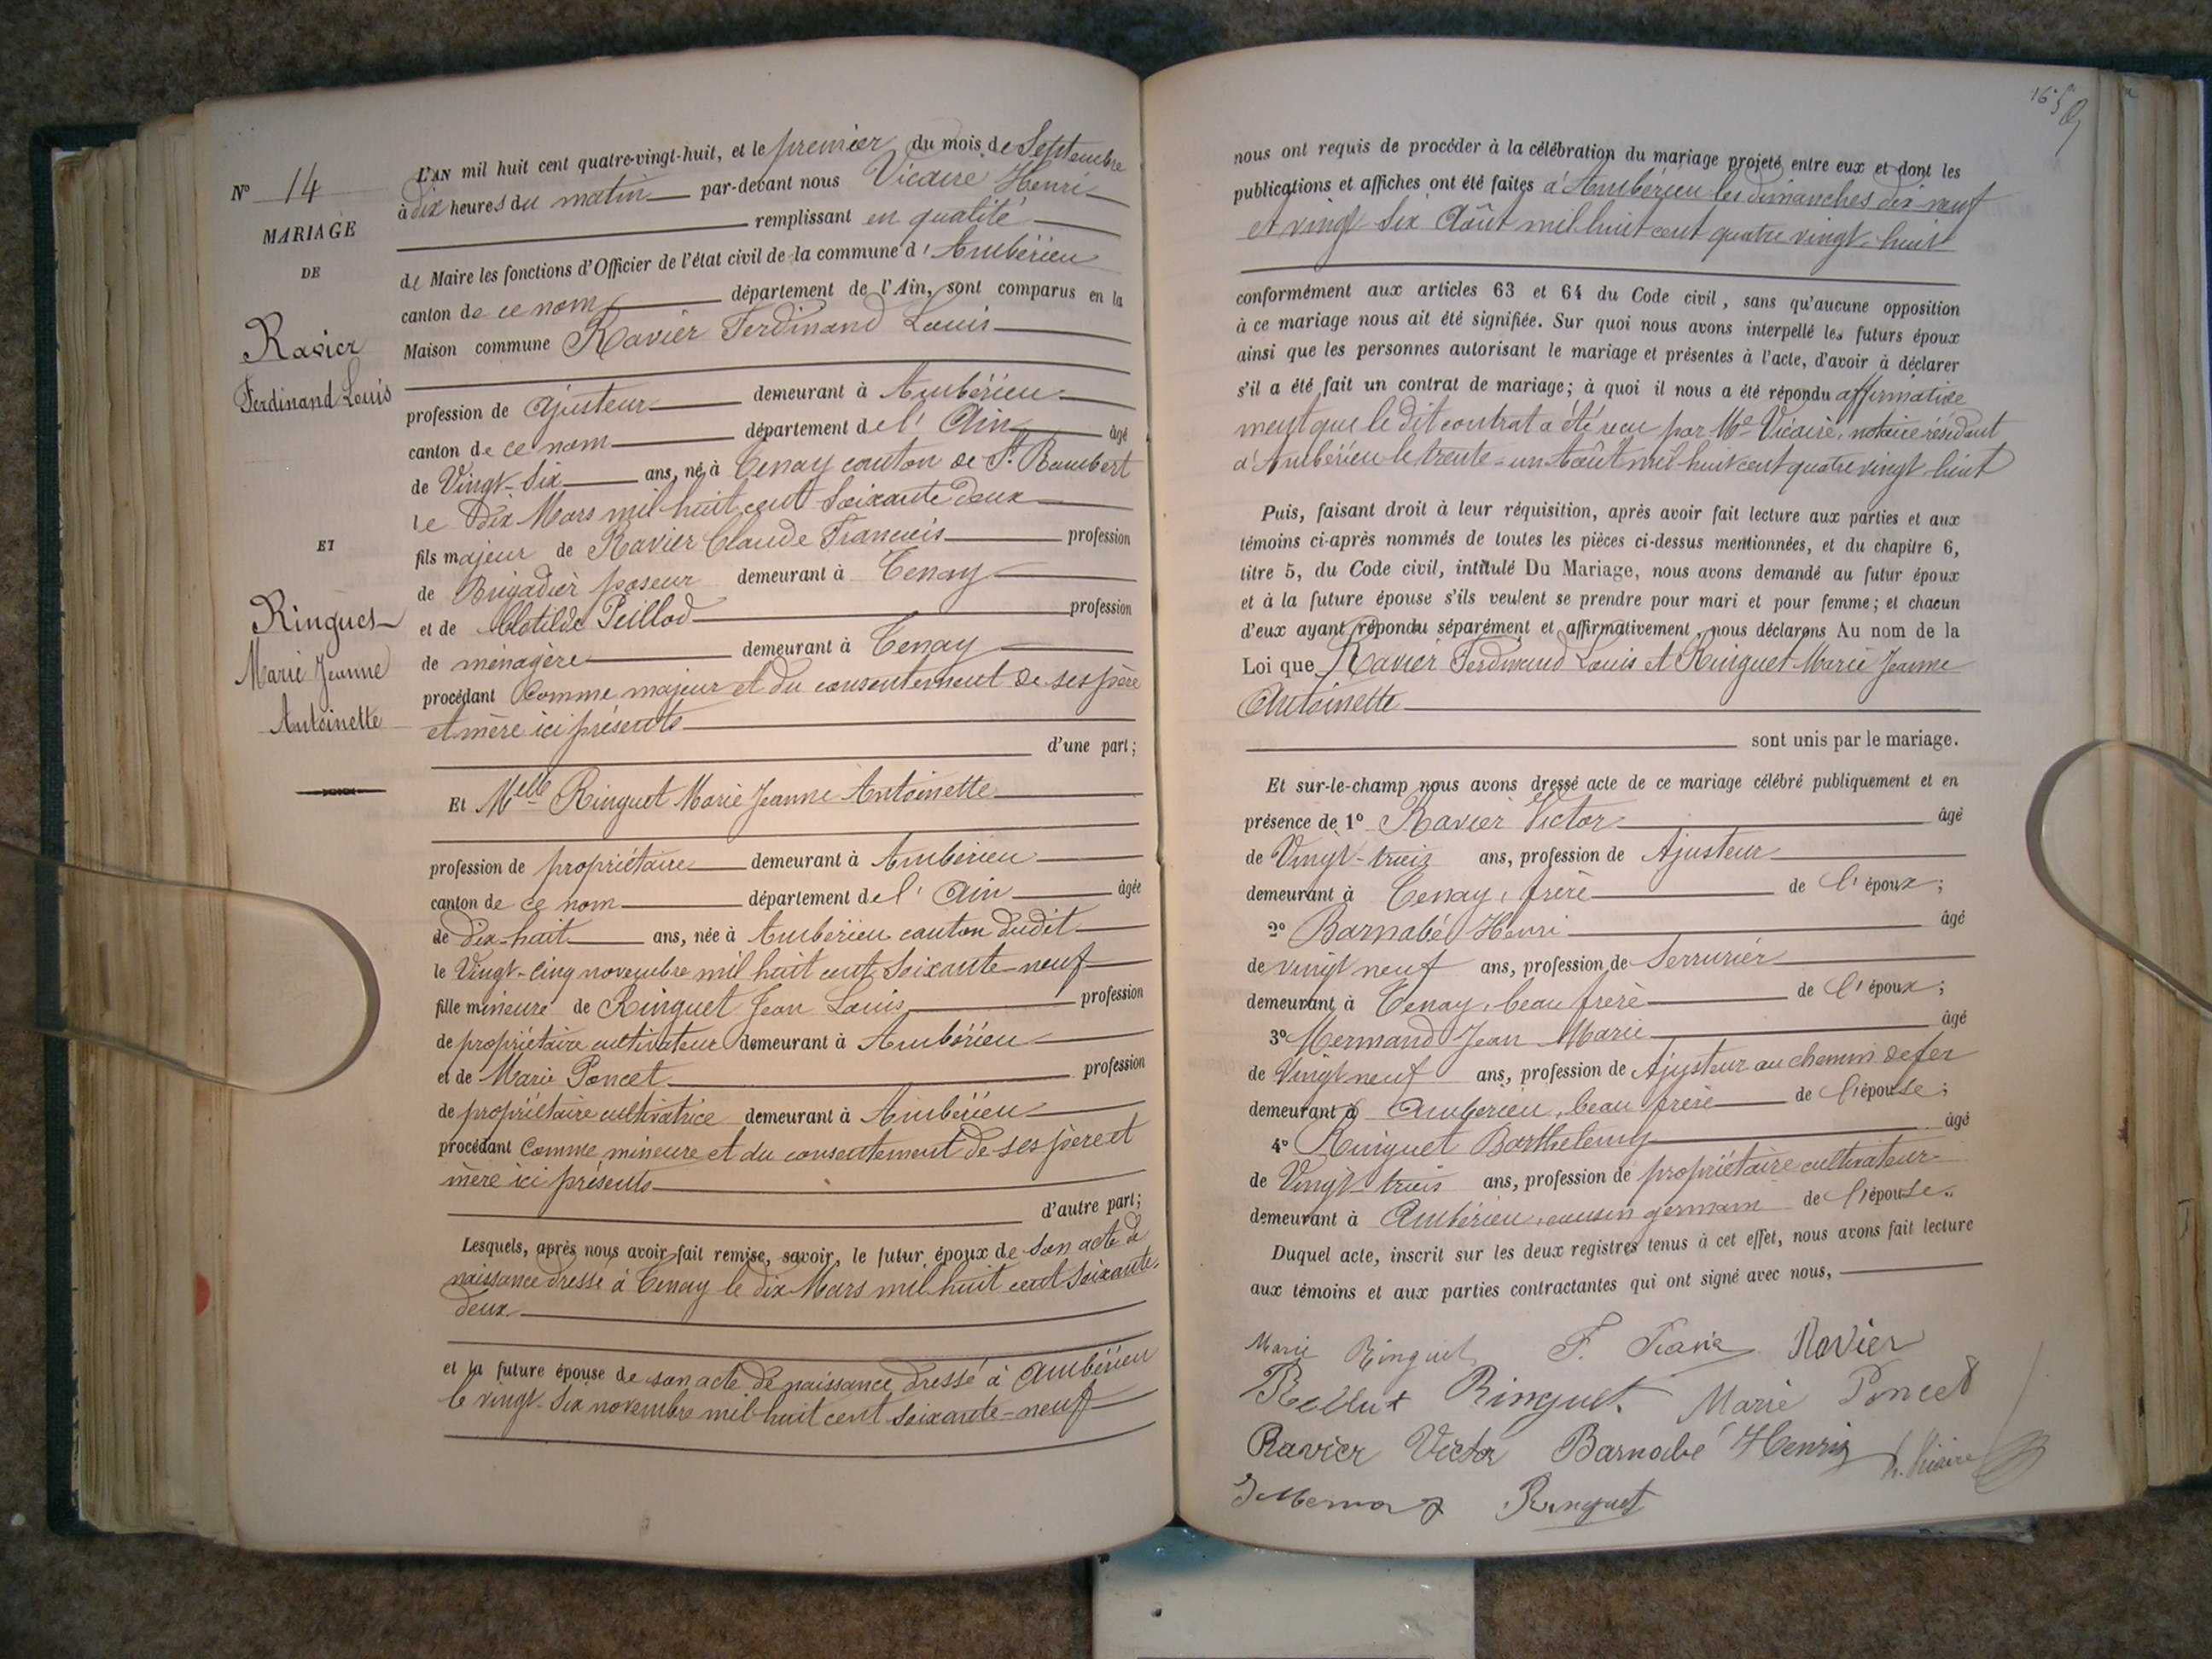 N° 14
MARIAGE
DE
Ravier
Ferdinand Louis
ET
Ringuet
Marie Jeanne
Antoinette
L'AN mil huit cent quatre-vingt-huit, et le premier du mois de Septembre
à dix heures du matin par-devant nous Vicaire Henri
remplissant en qualité
de Maire les fonctions d'Officier de l'état civil de la commune d'Ambérieu
canton de ce nom département de l'Ain, sont comparus en la
Maison commune Ravier Ferdinand Louis
profession de Ajusteur demeurant à Ambérieu
canton de ce nom département de l'Ain âgé
de Vingt-six ans, né à Tenay canton de St. Rambert
le dix Mars mil huit cent soixante deux
fils majeur de Ravier Claude François profession
de Brigadier poseur demeurant à Tenay
et de Clotilde Peillod profession
de ménagère demeurant à Tenay
procédant comme majeur et du consentement de ses père
et mère ici présents
d'une part;
Et Melle Ringuet Marie Jeanne Antoinette
profession de propriétaire demeurant à Ambérieu
canton de ce nom département de l'Ain âgée
de dix-huit ans, née à Ambérieu canton dudit
le Vingt-cinq novembre mil huit cent soixante-neuf
fille mineure de Ringuet Jean Louis profession
de propriétaire cultivateur demeurant à Ambérieu
et de Marie Poncet profession
de propriétaire cultivatrice demeurant à Ambérieu
procédant comme mineure et du consentement de ses père et
mère ici présents
d'autre part;
Lesquels, après nous avoir fait remise, savoir, le futur époux de son acte de
naissance dressé à Tenay le dix Mars mil huit cent soixante-
deux
et la future épouse de son acte de naissance dressé à Ambérieu
le vingt-six novembre mil huit cent soixante-neuf
165
nous ont requis de procéder à la célébration du mariage projeté entre eux et dont les
publications et affiches ont été faites à Ambérieu les dimanches dix-neuf
et vingt-six Août mil huit cent quatre vingt-huit
conformément aux articles 63 et 64 du Code civil, sans qu'aucune opposition
à ce mariage nous ait été signifiée. Sur quoi nous avons interpellé les futurs époux
ainsi que les personnes autorisant le mariage et présentes à l'acte, d'avoir à déclarer
s'il a été fait un contrat de mariage; à quoi il nous a été répondu affirmative
ment que le dit contrat a été reçu par Me Vicaire, notaire résidant
à Ambérieu le trente-un Août mil huit cent quatre vingt-huit
Puis, faisant droit à leur réquisition, après avoir fait lecture aux parties et aux
témoins ci-après nommés de toutes les pièces ci-dessus mentionnées, et du chapitre 6,
titre 5, du Code civil, intitulé Du Mariage, nous avons demandé au futur époux
et à la future épouse s'ils veulent se prendre pour mari et pour femme; et chacun
d'eux ayant répondu séparément et affirmativement, nous déclarons Au nom de la
Loi que Ravier Ferdinand Louis et Ringuet Marie Jeanne
Antoinette
sont unis par le mariage.
Et sur-le-champ nous avons dressé acte de ce mariage célébré publiquement et en
présence de 1° Ravier Victor âgé
de Vingt-trois ans, profession de Ajusteur
demeurant à Tenay, frère de l'époux;
2° Barnabé Henri âgé
de vingt neuf ans, profession de Serrurier
demeurant à Tenay, beau frère de l'époux;
3° Mermand Jean Marie âgé
de Vingt neuf ans, profession de Ajusteur au chemin de fer
demeurant à Ambérieu, beau frère de l'épouse;
4° Ringuet Barthelemy âgé
de Vingt-trois ans, profession de propriétaire cultivateur
demeurant à Ambérieu, cousin germain de l'épouse.
Duquel acte, inscrit sur les deux registres tenus à cet effet, nous avons fait lecture
aux témoins et aux parties contractantes qui ont signé avec nous,
Marie Ringuet F. Ravier
Ringuet Marie Poncet
Ravier Victor Barnabé Henri h. Vicaire
Ringuet